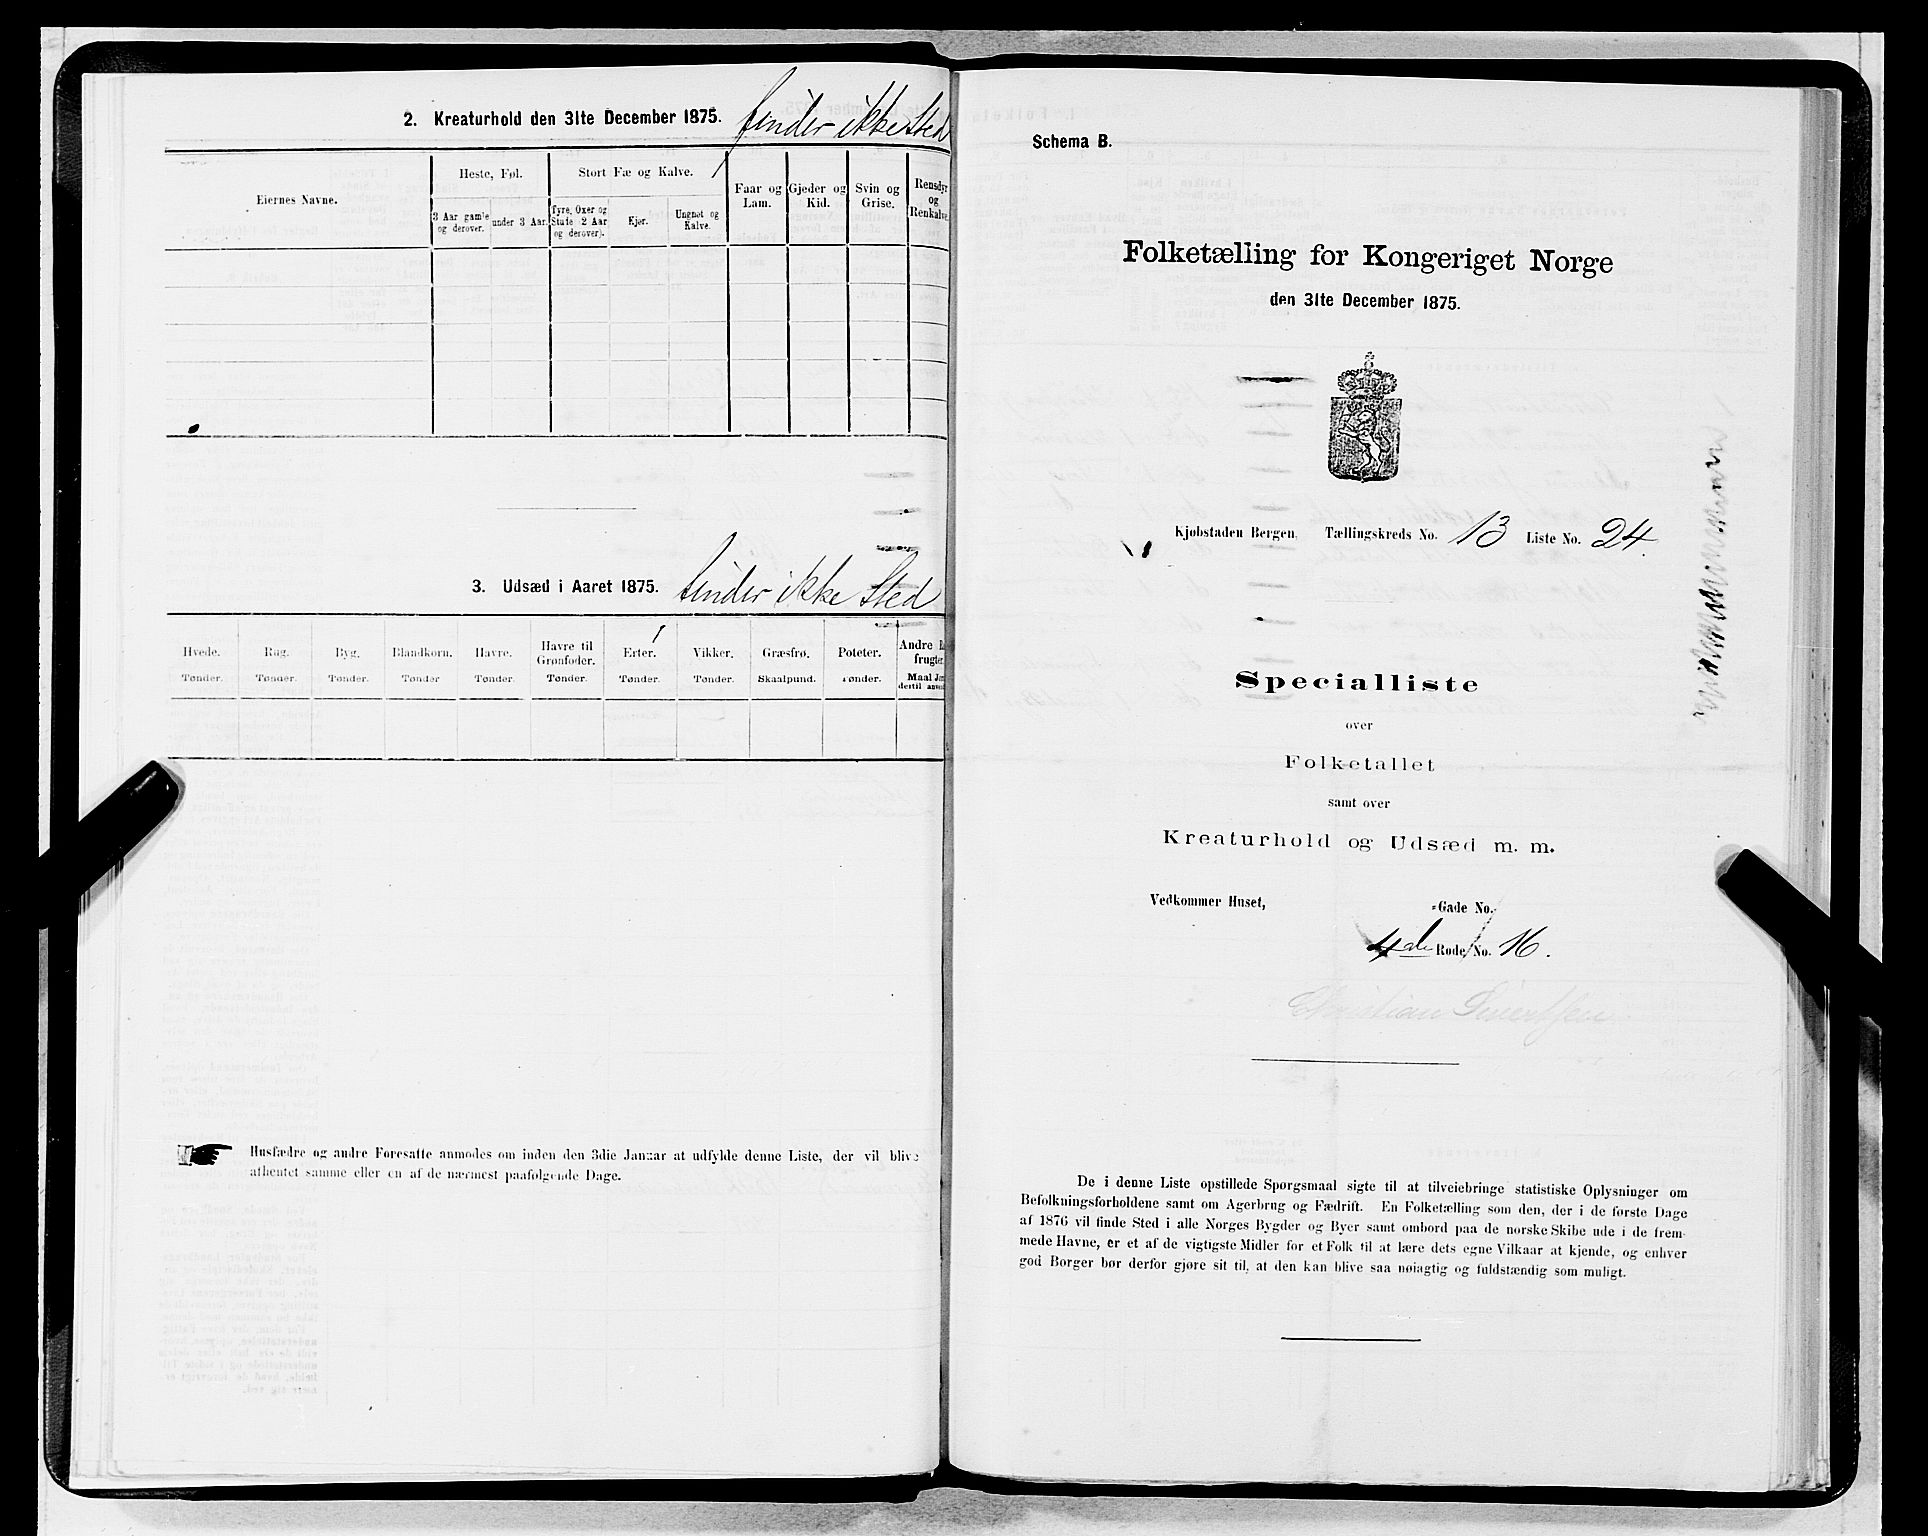 2. Kreaturhold den 31te December 1875. finder ikke Sted
Eiernes Navne.
Heste, Føl.
Stort Fæ og Kalve.
Faar og Lam.
Gjeder og Kid.
Svin og Grise.
Rensdyr og Renkalve.
3 Aar gamle og derover.
under 3 Aar.
Tyre, Oxer og Stude (2 Aar og derover).
Kjør.
Ungnøt og Kalve.
3. Udsæd i Aaret 1875. finder ikke Sted
Hvede. Rug. Byg. Blandkorn. Havre. Havre til Grønfoder. Erter. Vikker. Græsfrø. Poteter. Andre
Tønder. Tønder. Tønder. Tønder Tønder. Tønder. Tønder. Tønder. Skaalpund. Tønder. Maal
Husfædre og andre Foresatte anmodes om inden den 3die Januar at udfylde denne Liste, der vil blive
afhentet samme eller en af de nærmest paafølgende Dage.
Schema B.
Folketælling for Kongeriget Norge
den 31te December 1875.
Kjøbstaden Bergen. Tællingskreds No. 13 Liste No. 24.
Specialliste
over
Folketallet
samt over
Kreaturhold og Udsæd m. m.
Vedkommer Huset, -Gade No.
4de Rode No. 16.
Christian Sivertsen
De i denne Liste opstillede Spørgsmaal sigte til at tilveiebringe statistiske Oplysninger om
Befolkningsforholdene samt om Agerbrug og Fædrift. En Folketælling som den, der i de første Dage
af 1876 vil finde Sted i alle Norges Bygder og Byer samt ombord paa de norske Skibe ude i de frem-
mede Havne, er et af de vigtigste Midler for et Folk til at lære dets egne Vilkaar at kjende, og enhver
god Borger bør derfor gjøre sit til, at den kan blive saa nøiagtig og fuldstændig som muligt.